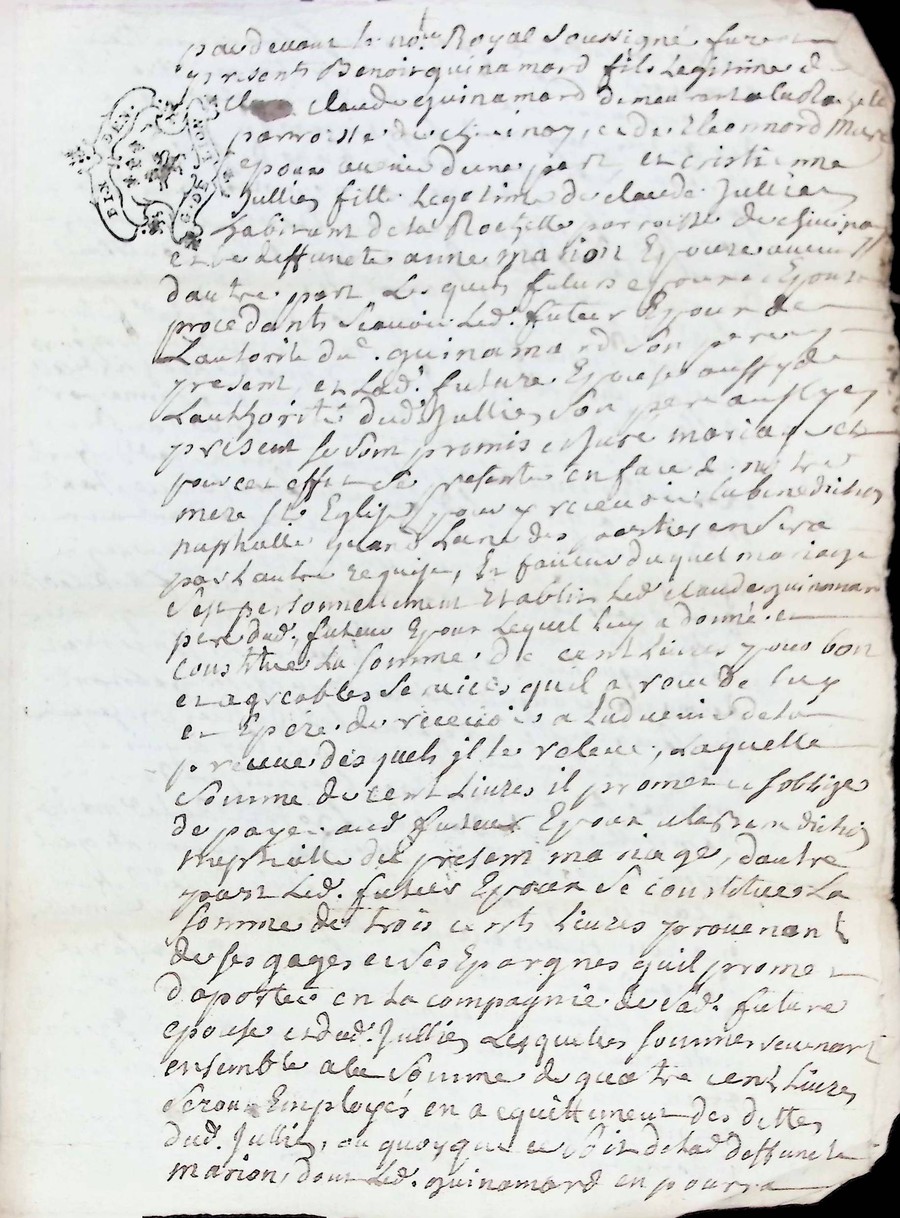 pardevant le no.re Royal soussigné furent
presents Benoit guinamard fils Legitime de
claude guinamard demeurant a la Rochette
parroisse de chirinay, et de Eleonnord
epoux avenir d'une part et cristienne
Jullien fille Legitime de claude Jullien
habitant de la Rochelle parroisse de
et de deffuncte anne marion Epouze avenir
dautre part Les quels futurs epoux et Epouze
procedants scavoir Led. futeur Epoux de
Lautorite dud. guinamard son pere
present, et Lad. future Epouse aussy de
Lauthorité dud. Jullien son pere aussy
present se sont promis et Jure mariage et
pour cet effet se presenter en face de notre
mere Ste Eglise pour y recevoir la benediction
nuptialle quand Lune des parties en sera
par Lautre requise, En faveur duquel mariage
c'est personnellement Etablit Led. claude guinamard
pere dud. futeur Epoux Lequel luy a donné et
constitue La somme de cent Livres pour bon
et agreables services quil a reçu de luy
et Espere de recevoir a Ladvenir de la
preuve desquels il le releve, Laquelle
somme de cent Livres il promet et soblige
de payer aud. futeur Epoux a la Benediction
nuptialle du present mariage, dautre
part Led. futeur Epoux se constitue La
somme de trois cents Livres provenant
de ses gages et ses Epargnes quil promet
daporter en La compagnie de sad. future
epouse et dud. Jullien Lesquelles sommes revenant
ensemble a la somme de quatre cent Livres
seront Employés en acquittement des dettes
dud. Jullien, ou quoyque ce soit de lad. deffuncte
marion, dont Led. guinamard en pourra